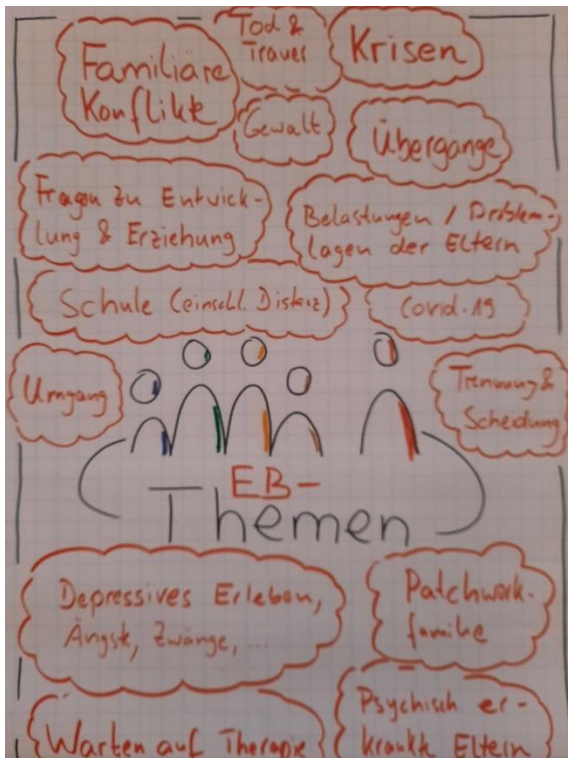 Familiäre
Konflikte
Tod &
Trauer
Krisen
Gewalt
Übergänge
Fragen zu Entwick-
lung & Erziehung
Belastungen / Problem-
lagen der Eltern
Schule (einschl. Distanz)
Covid-19
Umgang
Trennung &
Scheidung
EB-
Themen
Depressives Erleben,
Ängste, Zwänge, ...
Patchwork-
familie
Warten auf Therapie
Psychisch er-
krankte Eltern